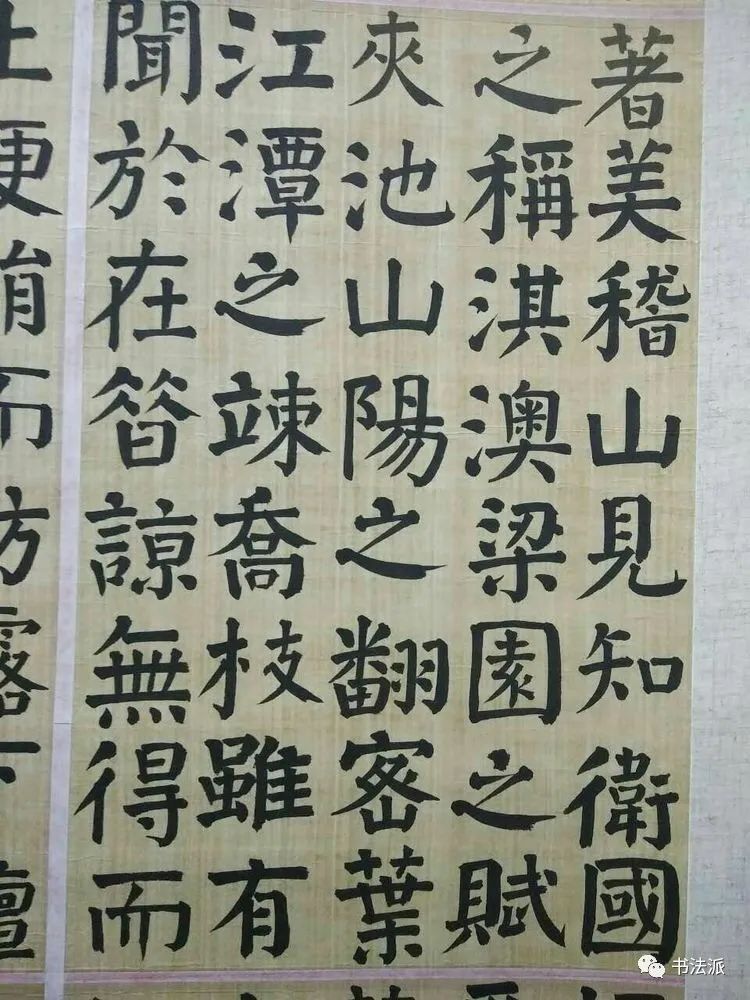 著美稽山見知衛國
之稱淇澳梁園之賦
夾池山陽之翻密葉
江潭之竦喬枝雖有
聞於在昝諒無得而
书法派